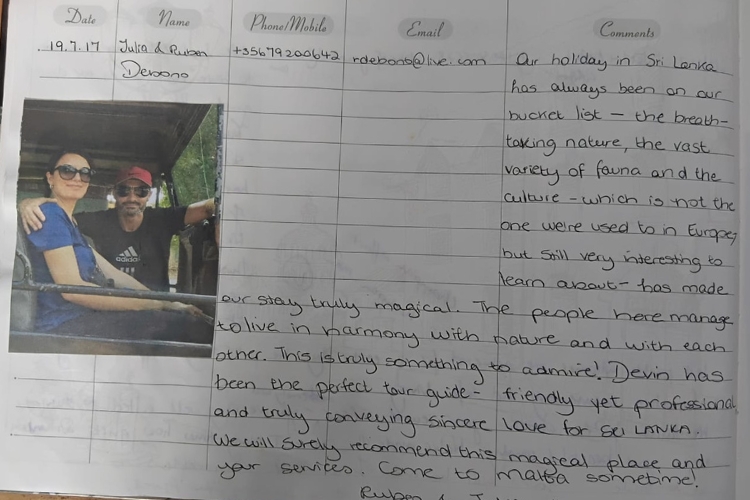 Date Name Phone/Mobile Email Comments
19.7.17 Julia & Ruben +35679200642 rdebono@live.com Our holiday in Sri Lanka
Debono has always been on our
bucket list – the breath-
taking nature, the vast
variety of fauna and the
culture – which is not the
one we're used to in Europe,
but still very interesting to
learn about – has made
adidas
our stay truly magical. The people here manage
to live in harmony with nature and with each
other. This is truly something to admire! Devin has
been the perfect tour guide – friendly yet professional
and truly conveying sincere love for SRI LANKA.
We will surely recommend this magical place and
your services. Come to Malta sometime!
Ruben &